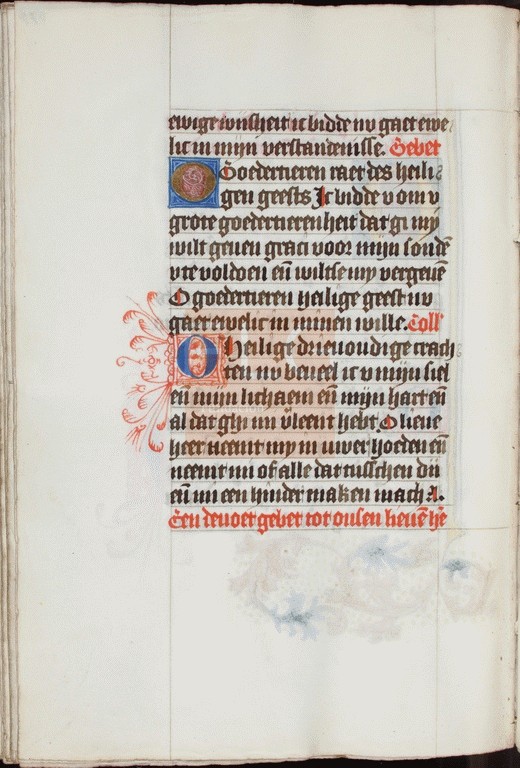 ewige wijsheit ic bidde nv gaet ewe
lic in mijn verstandenisse. Gebet
O Goedertieren raet des heili
gen geests Ic bidde v om v
grote goedertierenheit dat gi mij
wilt geuen graci voor mijn sondē
v te voldoen eñ wiltse my vergeuē
O goedertieren heilige geest nv
gaet ewelic in minen wille. Coll
O Heilige drieuoudige crach
ten nv beueel ic v mijn siel
eñ mijn lichaem eñ mijn hart eñ
al dat ghi mi verleent hebt. O lieue
heer neemt my in uwer hoeden eñ
neemt mi of alle dat tusschen dij
eñ mi een hinder maken mach A.
Een deuoet gebet tot onsen lieuē hē